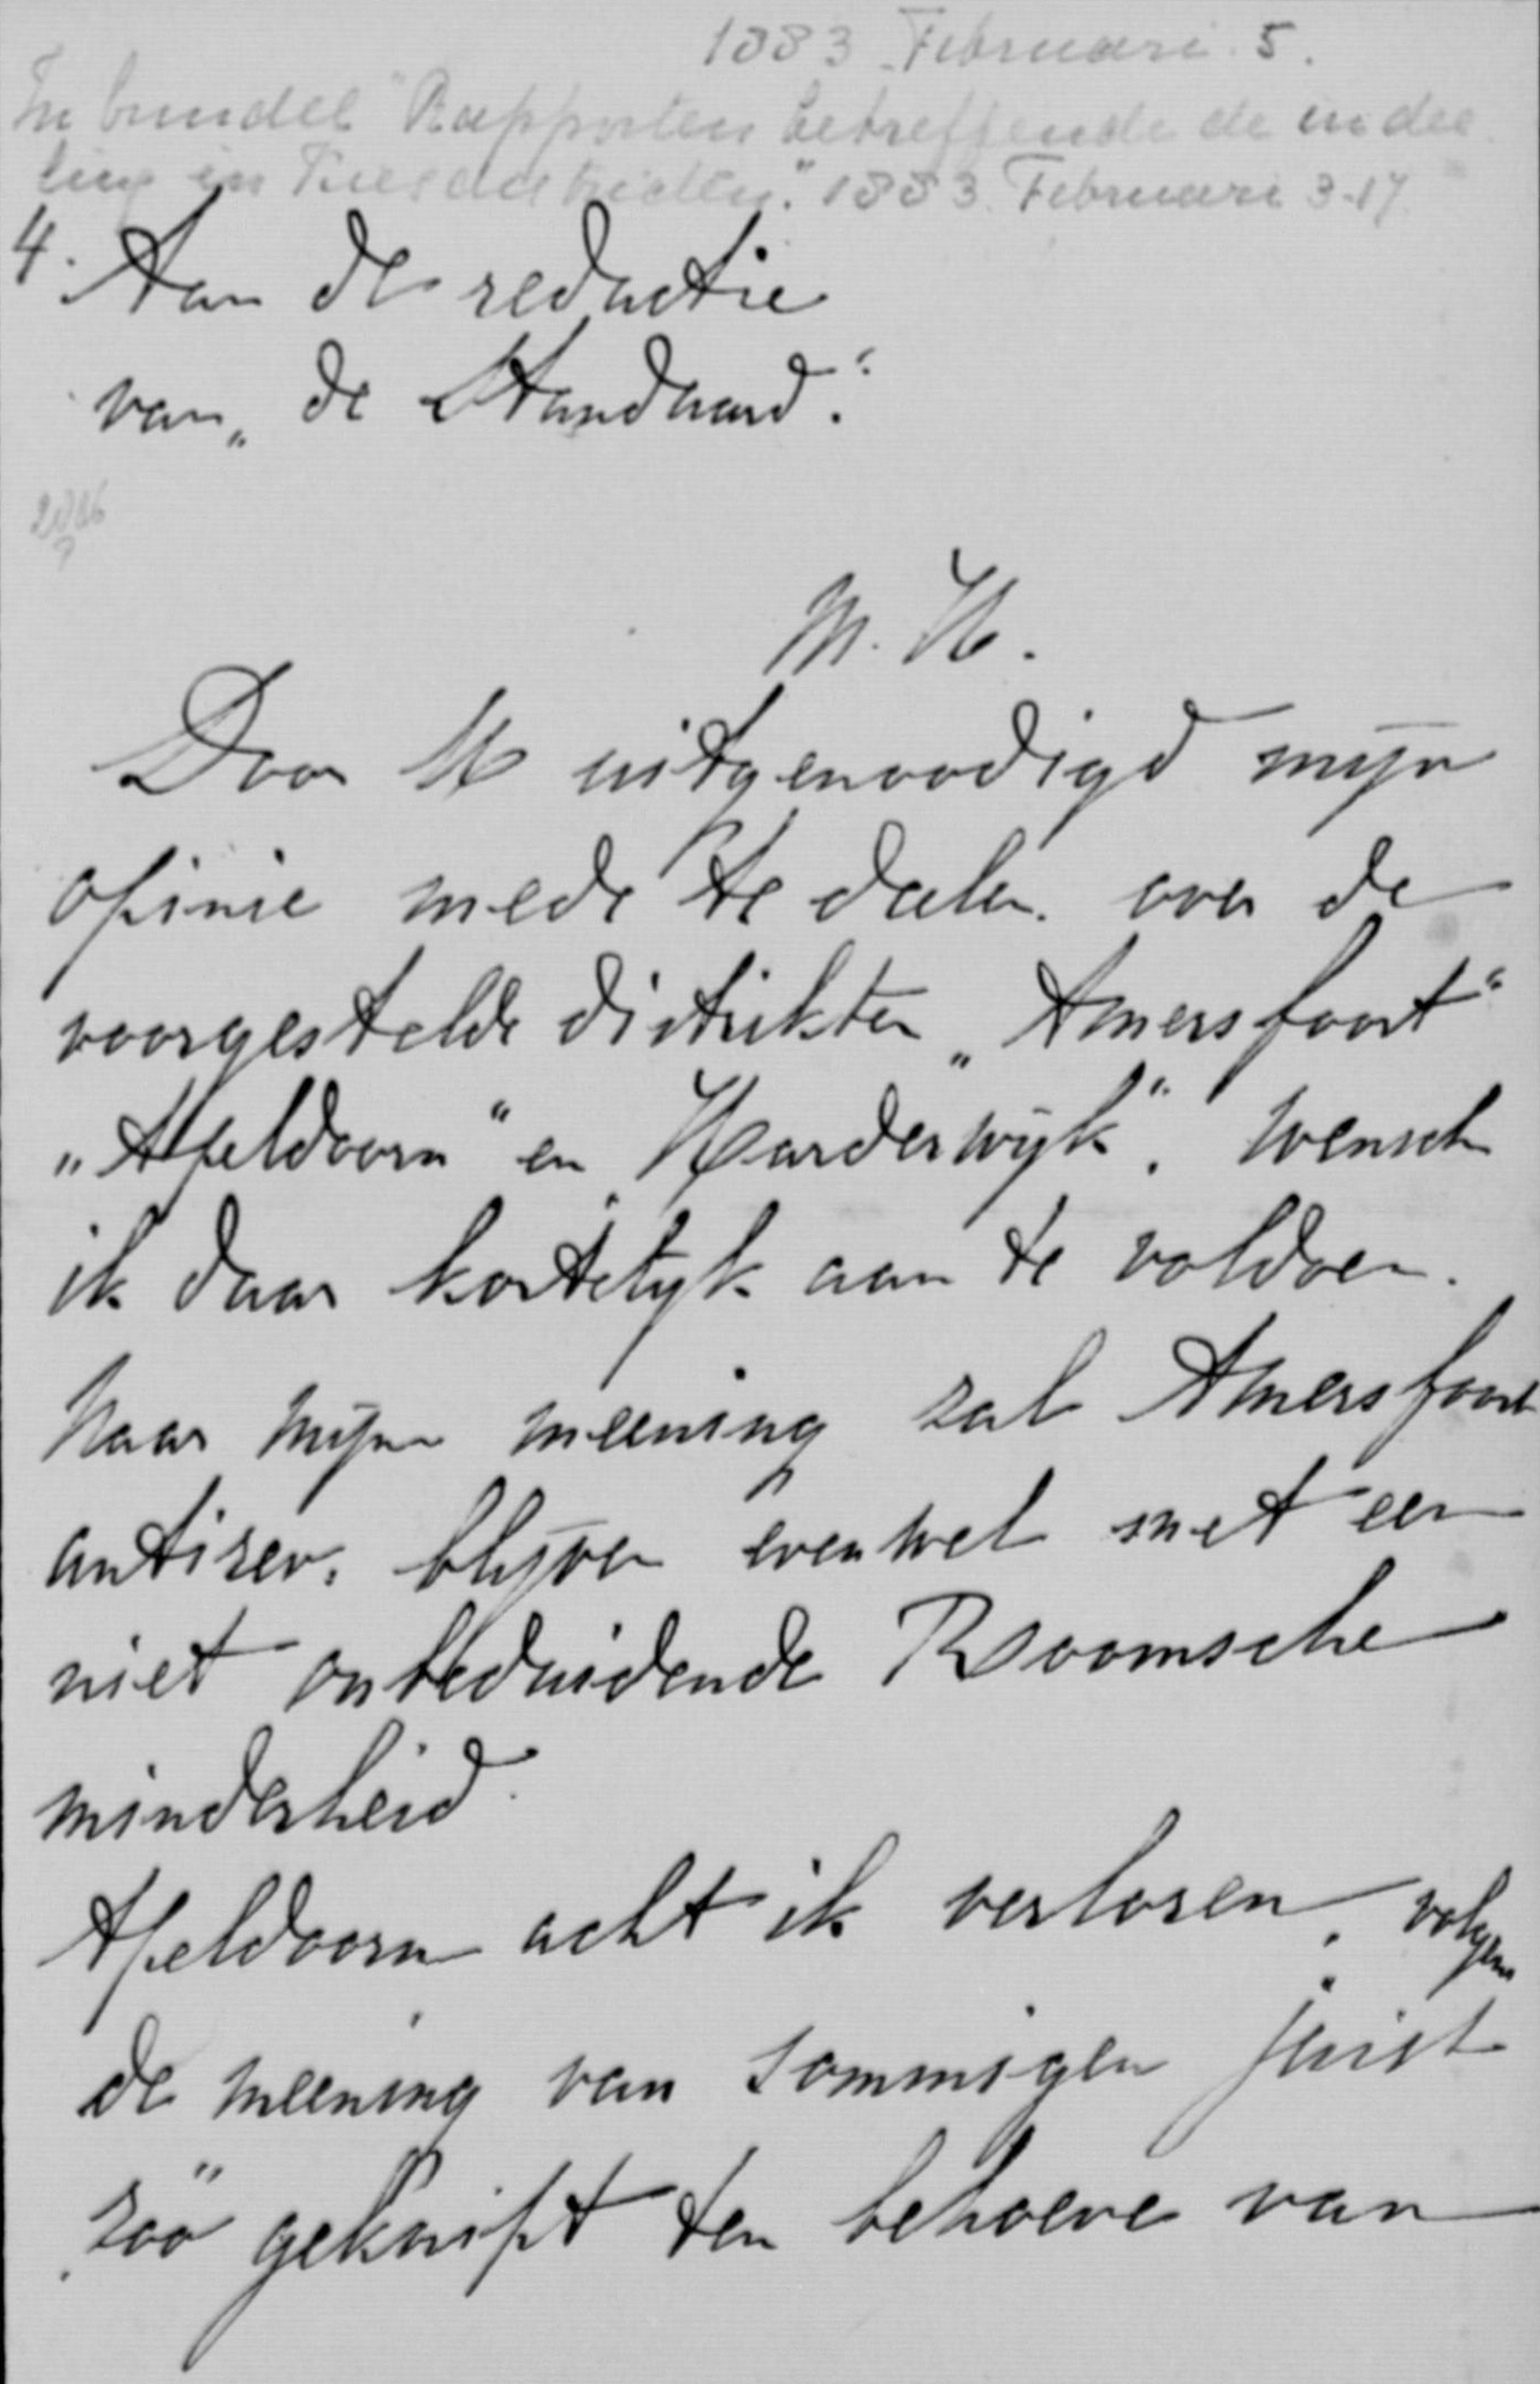 1883 Februari. 5.
In bundel "Rapporten betreffende de indee
ling in Kiesdistricten." 1883. Februari 3-17
4. Aan de redactie
van „de Standaard.“
M. H.
Door U uitgenoodigd mijn
opinie mede te deelen over de
voorgestelde distrikten „Amersfoort“
„Apeldoorn“ en „Harderwijk“, wensch
ik daar kortelijk aan te voldoen.
Naar mijne meening zal Amersfoort
antirev. blijven evenwel met een
niet onbeduidende Roomsche
minderheid.
Apeldoorn acht ik verloren, volgens
de meening van sommigen juist
zóó geknipt ten behoeve van